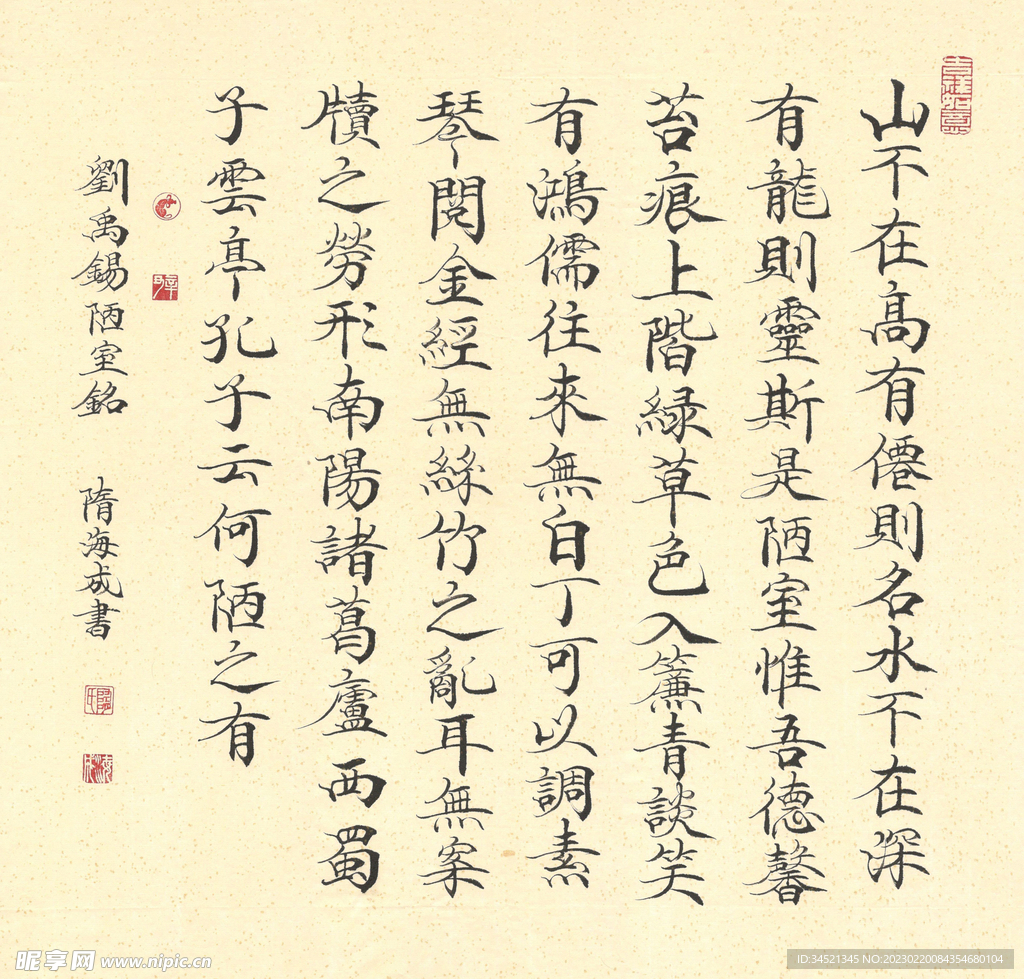 山不在高有僊則名水不在深
有龍則靈斯是陋室惟吾德馨
苔痕上階緑草色入簾青談笑
有鴻儒往來無白丁可以調素
琴閱金經無絲竹之亂耳無案
牘之勞形南陽諸葛廬西蜀
子雲亭孔子云何陋之有
劉禹錫陋室銘 隋海成書
昵享网 www.nipic.cn
ID:34521345 NO:20230220084354680104